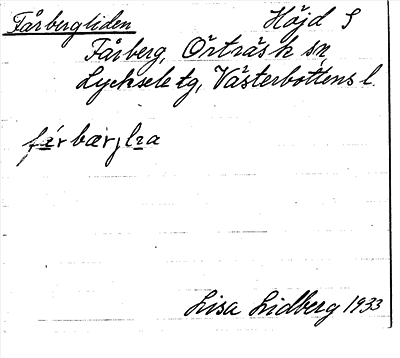 Fårbergliden Höjd S
Fårberg, Örträsk sn,
Lycksele tg, Västerbottens l.
fårbærjlıa
Lisa Lidberg 1933